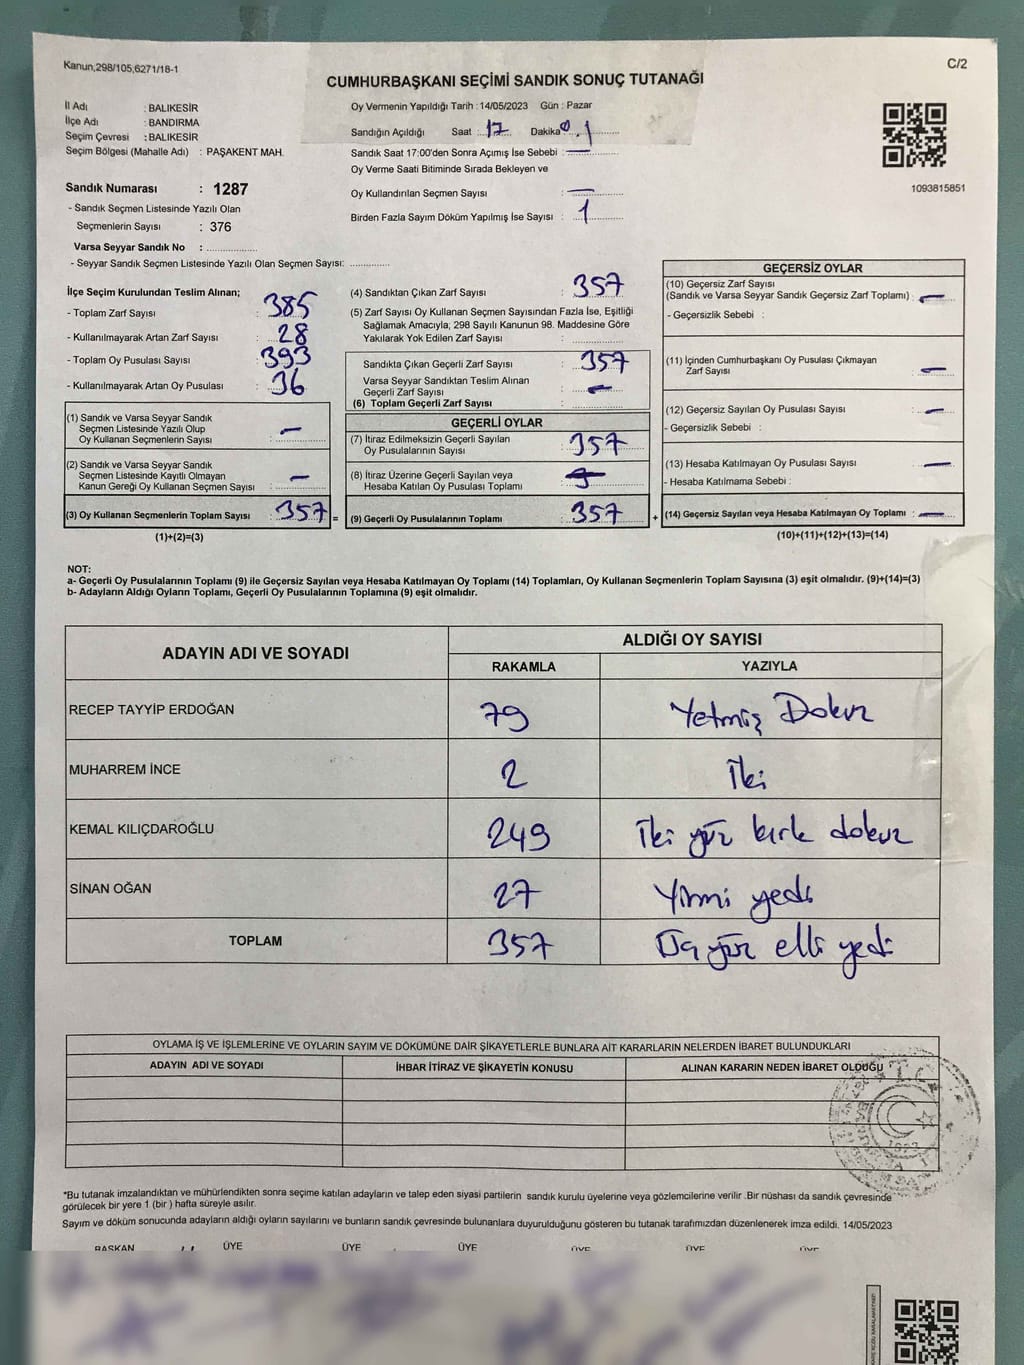 Kanun,298/105,6271/18-1
C/2
CUMHURBAŞKANI SEÇİMİ SANDIK SONUÇ TUTANAĞI
İl Adı : BALIKESİR
İlçe Adı : BANDIRMA
Seçim Çevresi : BALIKESİR
Seçim Bölgesi (Mahalle Adı) : PAŞAKENT MAH.
Oy Vermenin Yapıldığı Tarih : 14/05/2023 Gün : Pazar
Sandığın Açıldığı Saat : 17 Dakika
Sandık Saat 17:00'den Sonra Açımış İse Sebebi : —
Oy Verme Saati Bitiminde Sırada Bekleyen ve
Oy Kullandırılan Seçmen Sayısı : —
Birden Fazla Sayım Döküm Yapılmış İse Sayısı : 1
1093815851
Sandık Numarası : 1287
- Sandık Seçmen Listesinde Yazılı Olan
Seçmenlerin Sayısı : 376
Varsa Seyyar Sandık No : ..................
- Seyyar Sandık Seçmen Listesinde Yazılı Olan Seçmen Sayısı: ..............
İlçe Seçim Kurulundan Teslim Alınan;
- Toplam Zarf Sayısı : 385
- Kullanılmayarak Artan Zarf Sayısı : 28
- Toplam Oy Pusulası Sayısı : 393
- Kullanılmayarak Artan Oy Pusulası : 36
(1) Sandık ve Varsa Seyyar Sandık
Seçmen Listesinde Yazılı Olup
Oy Kullanan Seçmenlerin Sayısı : —
(2) Sandık ve Varsa Seyyar Sandık
Seçmen Listesinde Kayıtlı Olmayan
Kanun Gereği Oy Kullanan Seçmen Sayısı : —
(3) Oy Kullanan Seçmenlerin Toplam Sayısı : 357 =
(1)+(2)=(3)
(4) Sandıktan Çıkan Zarf Sayısı : 357
(5) Zarf Sayısı Oy Kullanan Seçmen Sayısından Fazla İse, Eşitliği
Sağlamak Amacıyla; 298 Sayılı Kanunun 98. Maddesine Göre
Yakılarak Yok Edilen Zarf Sayısı :
Sandıkta Çıkan Geçerli Zarf Sayısı : 357
Varsa Seyyar Sandıktan Teslim Alınan
Geçerli Zarf Sayısı : —
(6) Toplam Geçerli Zarf Sayısı :
GEÇERLİ OYLAR
(7) İtiraz Edilmeksizin Geçerli Sayılan
Oy Pusulalarının Sayısı : 357
(8) İtiraz Üzerine Geçerli Sayılan veya
Hesaba Katılan Oy Pusulası Toplamı :
(9) Geçerli Oy Pusulalarının Toplamı : 357 +
GEÇERSİZ OYLAR
(10) Geçersiz Zarf Sayısı
(Sandık ve Varsa Seyyar Sandık Geçersiz Zarf Toplamı) : —
- Geçersizlik Sebebi :
(11) İçinden Cumhurbaşkanı Oy Pusulası Çıkmayan
Zarf Sayısı : —
(12) Geçersiz Sayılan Oy Pusulası Sayısı : —
- Geçersizlik Sebebi :
(13) Hesaba Katılmayan Oy Pusulası Sayısı : —
- Hesaba Katılmama Sebebi :
(14) Geçersiz Sayılan veya Hesaba Katılmayan Oy Toplamı : —
(10)+(11)+(12)+(13)=(14)
NOT:
a- Geçerli Oy Pusulalarının Toplamı (9) ile Geçersiz Sayılan veya Hesaba Katılmayan Oy Toplamı (14) Toplamları, Oy Kullanan Seçmenlerin Toplam Sayısına (3) eşit olmalıdır. (9)+(14)=(3)
b- Adayların Aldığı Oyların Toplamı, Geçerli Oy Pusulalarının Toplamına (9) eşit olmalıdır.
ADAYIN ADI VE SOYADI
ALDIĞI OY SAYISI
RAKAMLA YAZIYLA
RECEP TAYYİP ERDOĞAN 79 Yetmiş Dokuz
MUHARREM İNCE 2 İki
KEMAL KILIÇDAROĞLU 249 İki yüz kırk dokuz
SİNAN OĞAN 27 Yirmi yedi
TOPLAM 357 Üç yüz elli yedi
OYLAMA İŞ VE İŞLEMLERİNE VE OYLARIN SAYIM VE DÖKÜMÜNE DAİR ŞİKAYETLERLE BUNLARA AİT KARARLARIN NELERDEN İBARET BULUNDUKLARI
ADAYIN ADI VE SOYADI İHBAR İTİRAZ VE ŞİKAYETİN KONUSU ALINAN KARARIN NEDEN İBARET OLDUĞU
*Bu tutanak imzalandıktan ve mühürlendikten sonra seçime katılan adayların ve talep eden siyasi partilerin sandık kurulu üyelerine veya gözlemcilerine verilir .Bir nüshası da sandık çevresinde
görülecek bir yere 1 (bir ) hafta süreyle asılır.
Sayım ve döküm sonucunda adayların aldığı oyların sayılarını ve bunların sandık çevresinde bulunanlara duyurulduğunu gösteren bu tutanak tarafımızdan düzenlenerek imza edildi. 14/05/2023
BAŞKAN ÜYE ÜYE ÜYE ÜYE ÜYE ÜYE